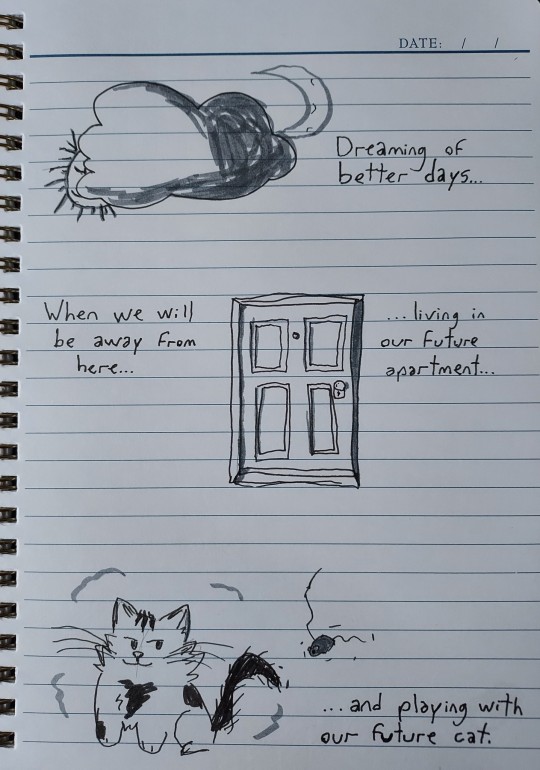 DATE: / /
Dreaming of
better days...
When we will
be away from
here...
...living in
our future
apartment...
...and playing with
our future cat.